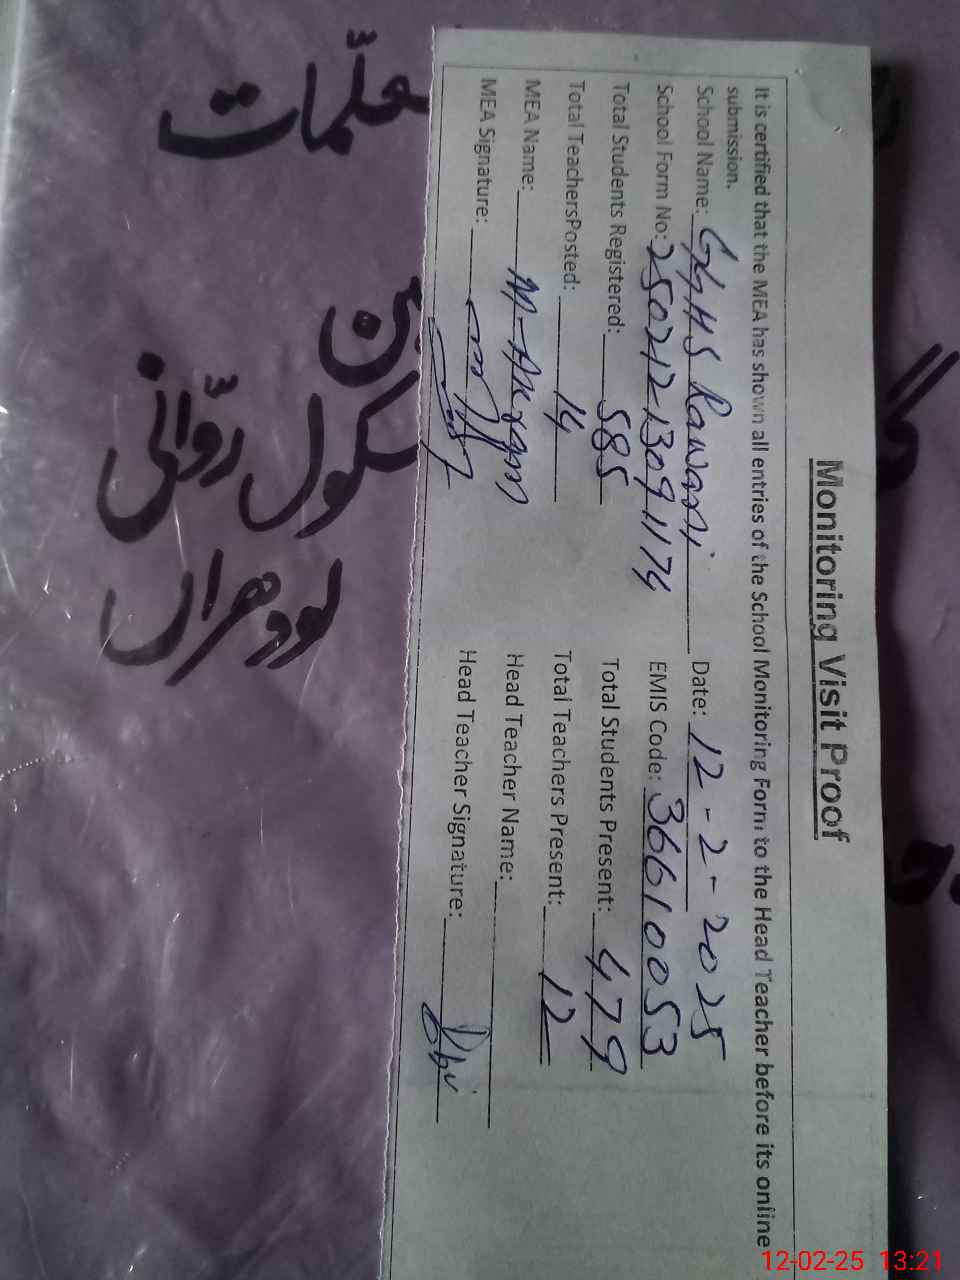 Monitoring Visit Proof
It is certified that the MEA has shown all entries of the School Monitoring Form to the Head Teacher before its online
submission.
School Name: GGHS Rawani Date: 12-2-2025
School Form No: 25021213091174 EMIS Code: 36610053
Total Students Registered: 585 Total Students Present: 479
Total TeachersPosted: 14 Total Teachers Present: 12
MEA Name: M-Akram Head Teacher Name:
MEA Signature: Head Teacher Signature:
سکول روانی
لودھراں
12-02-25 13:21